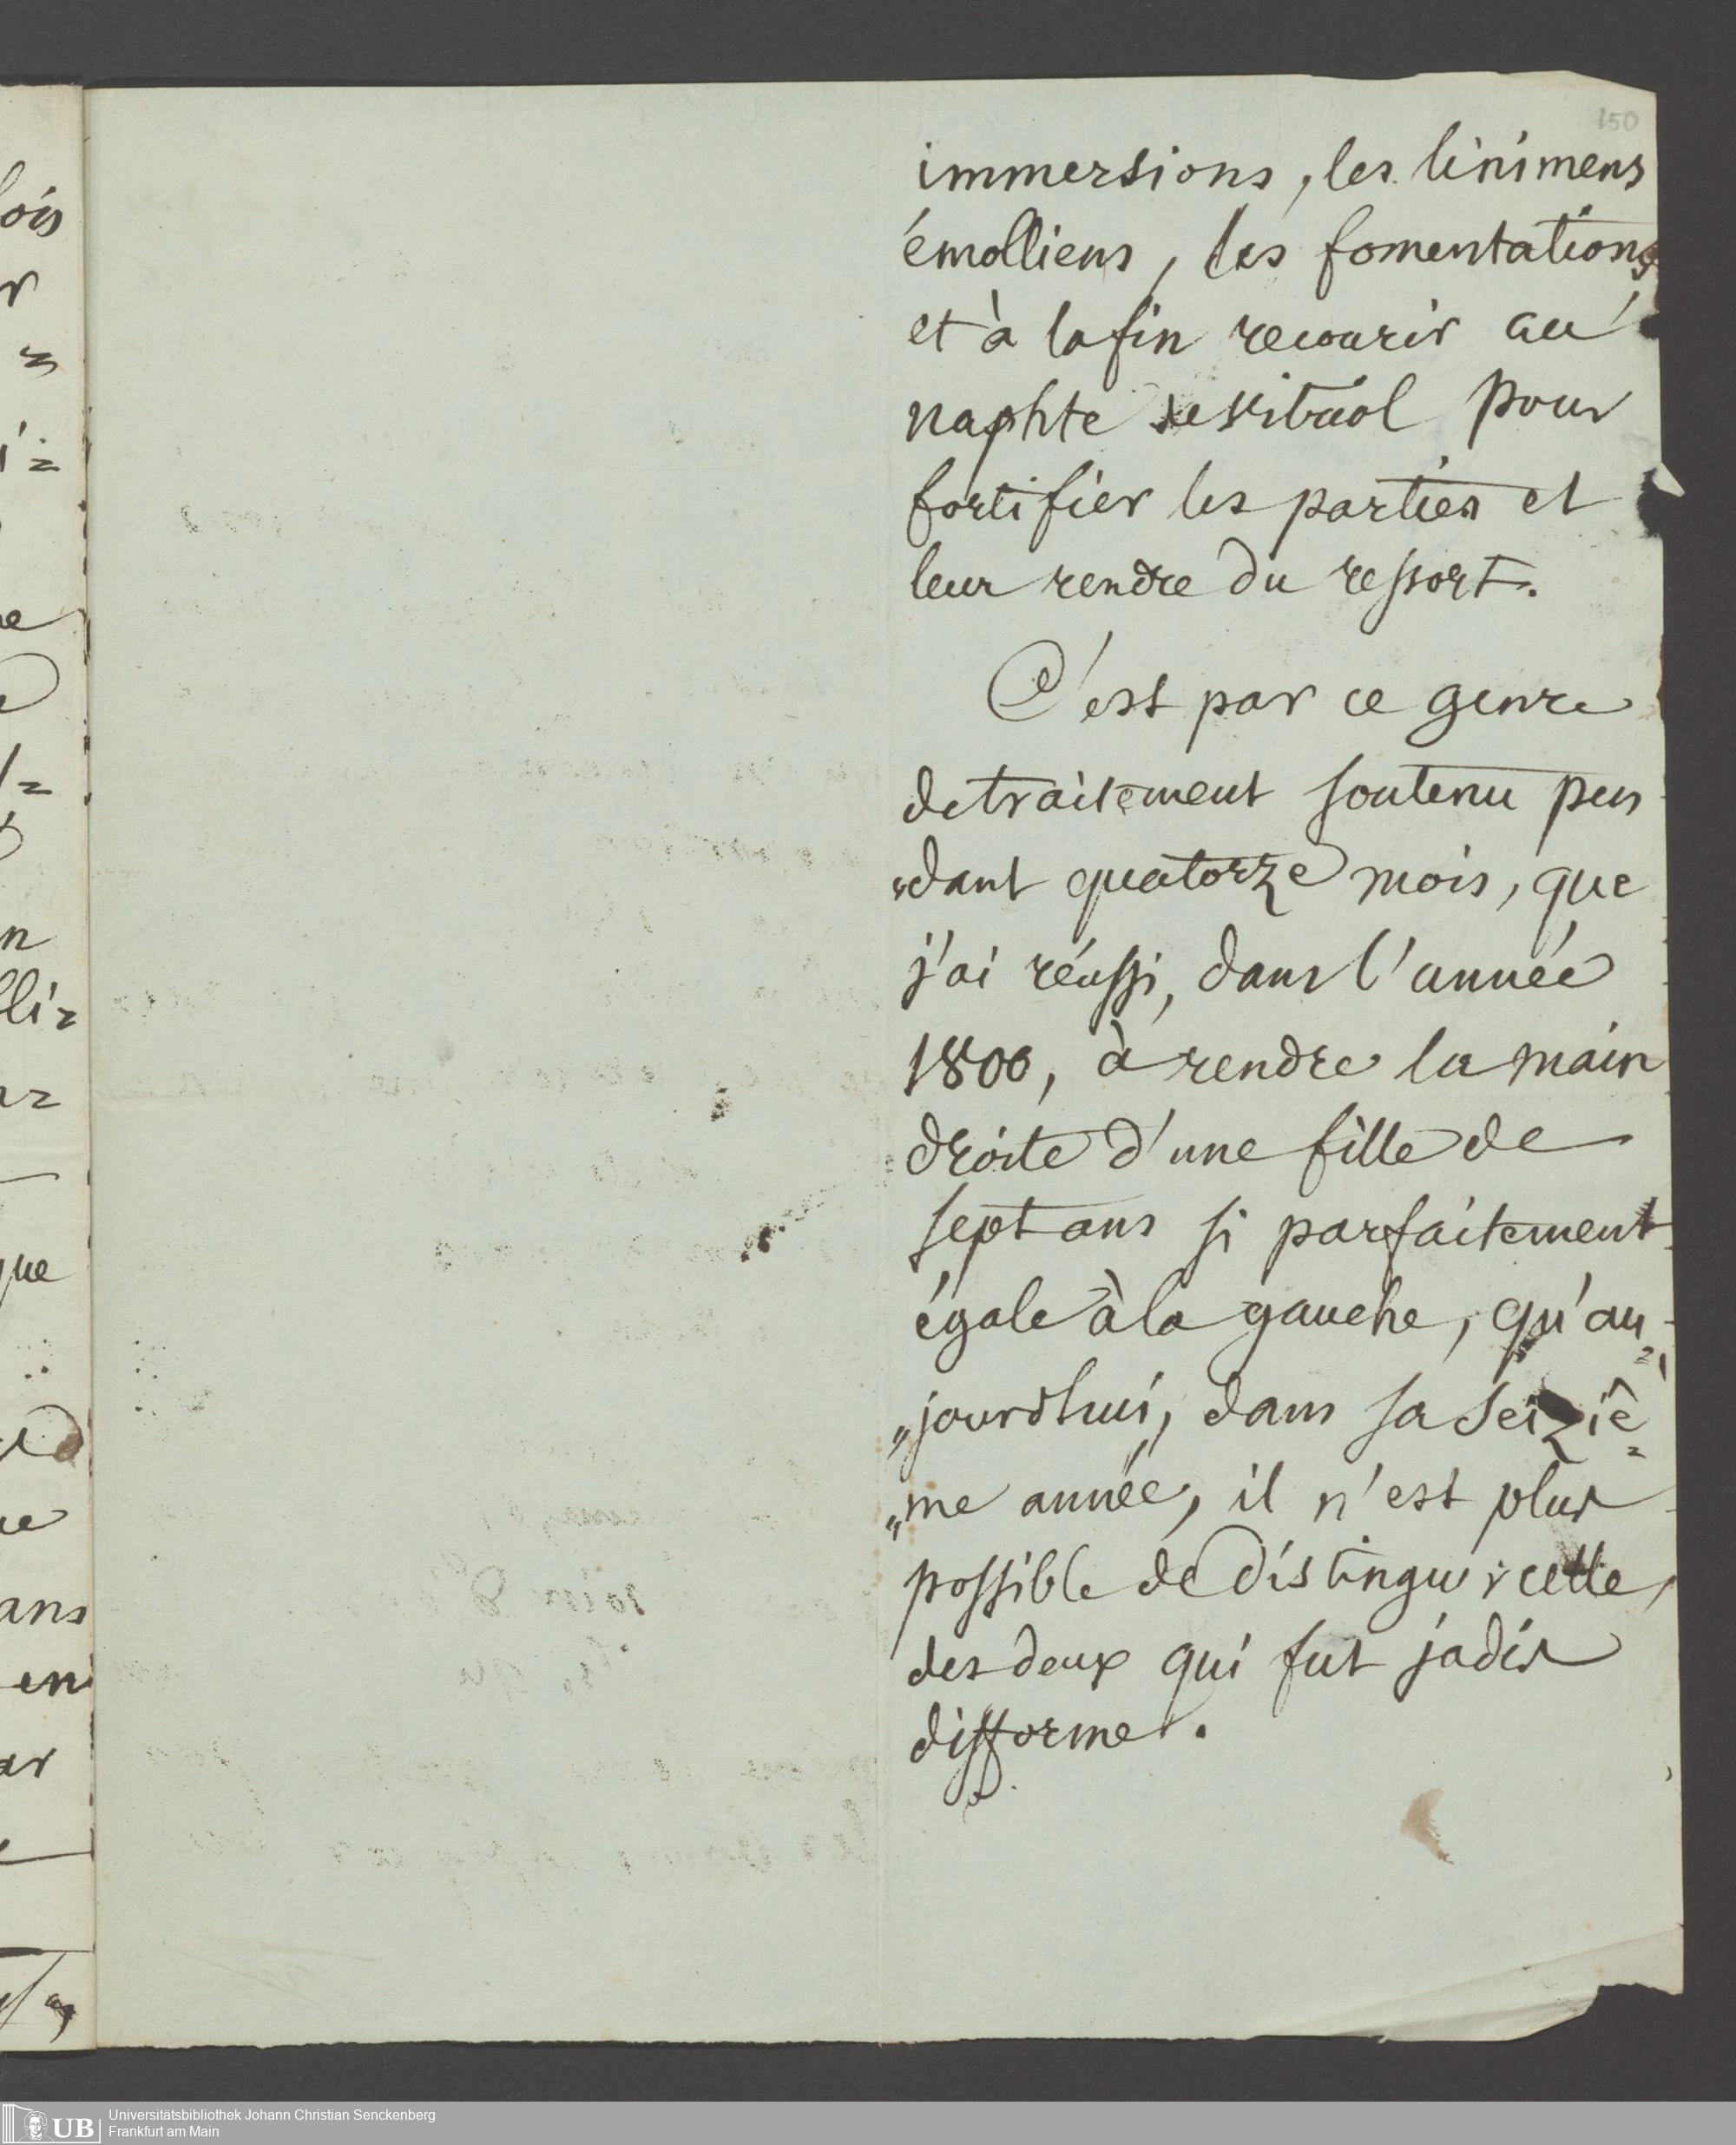 150
immersions, les linimens
émolliens, les fomentations
et à la fin recourir au
naphte de vitriol pour
fortifier les parties et
leur rendre du ressort.
C'est par ce genre
de traitement soutenu pen
"dant quatorze mois, que
j'ai réussi, dans l'année
1800, à rendre la main
droite d'une fille de
sept ans si parfaitement
égale à la gauche, qu'au=
"jourdhui, dans sa seiziê=
"me année, il n'est plus
possible de distinguer celle,
des deux qui fut jadis
difforme.
UB
Universitätsbibliothek Johann Christian Senckenberg
Frankfurt am Main